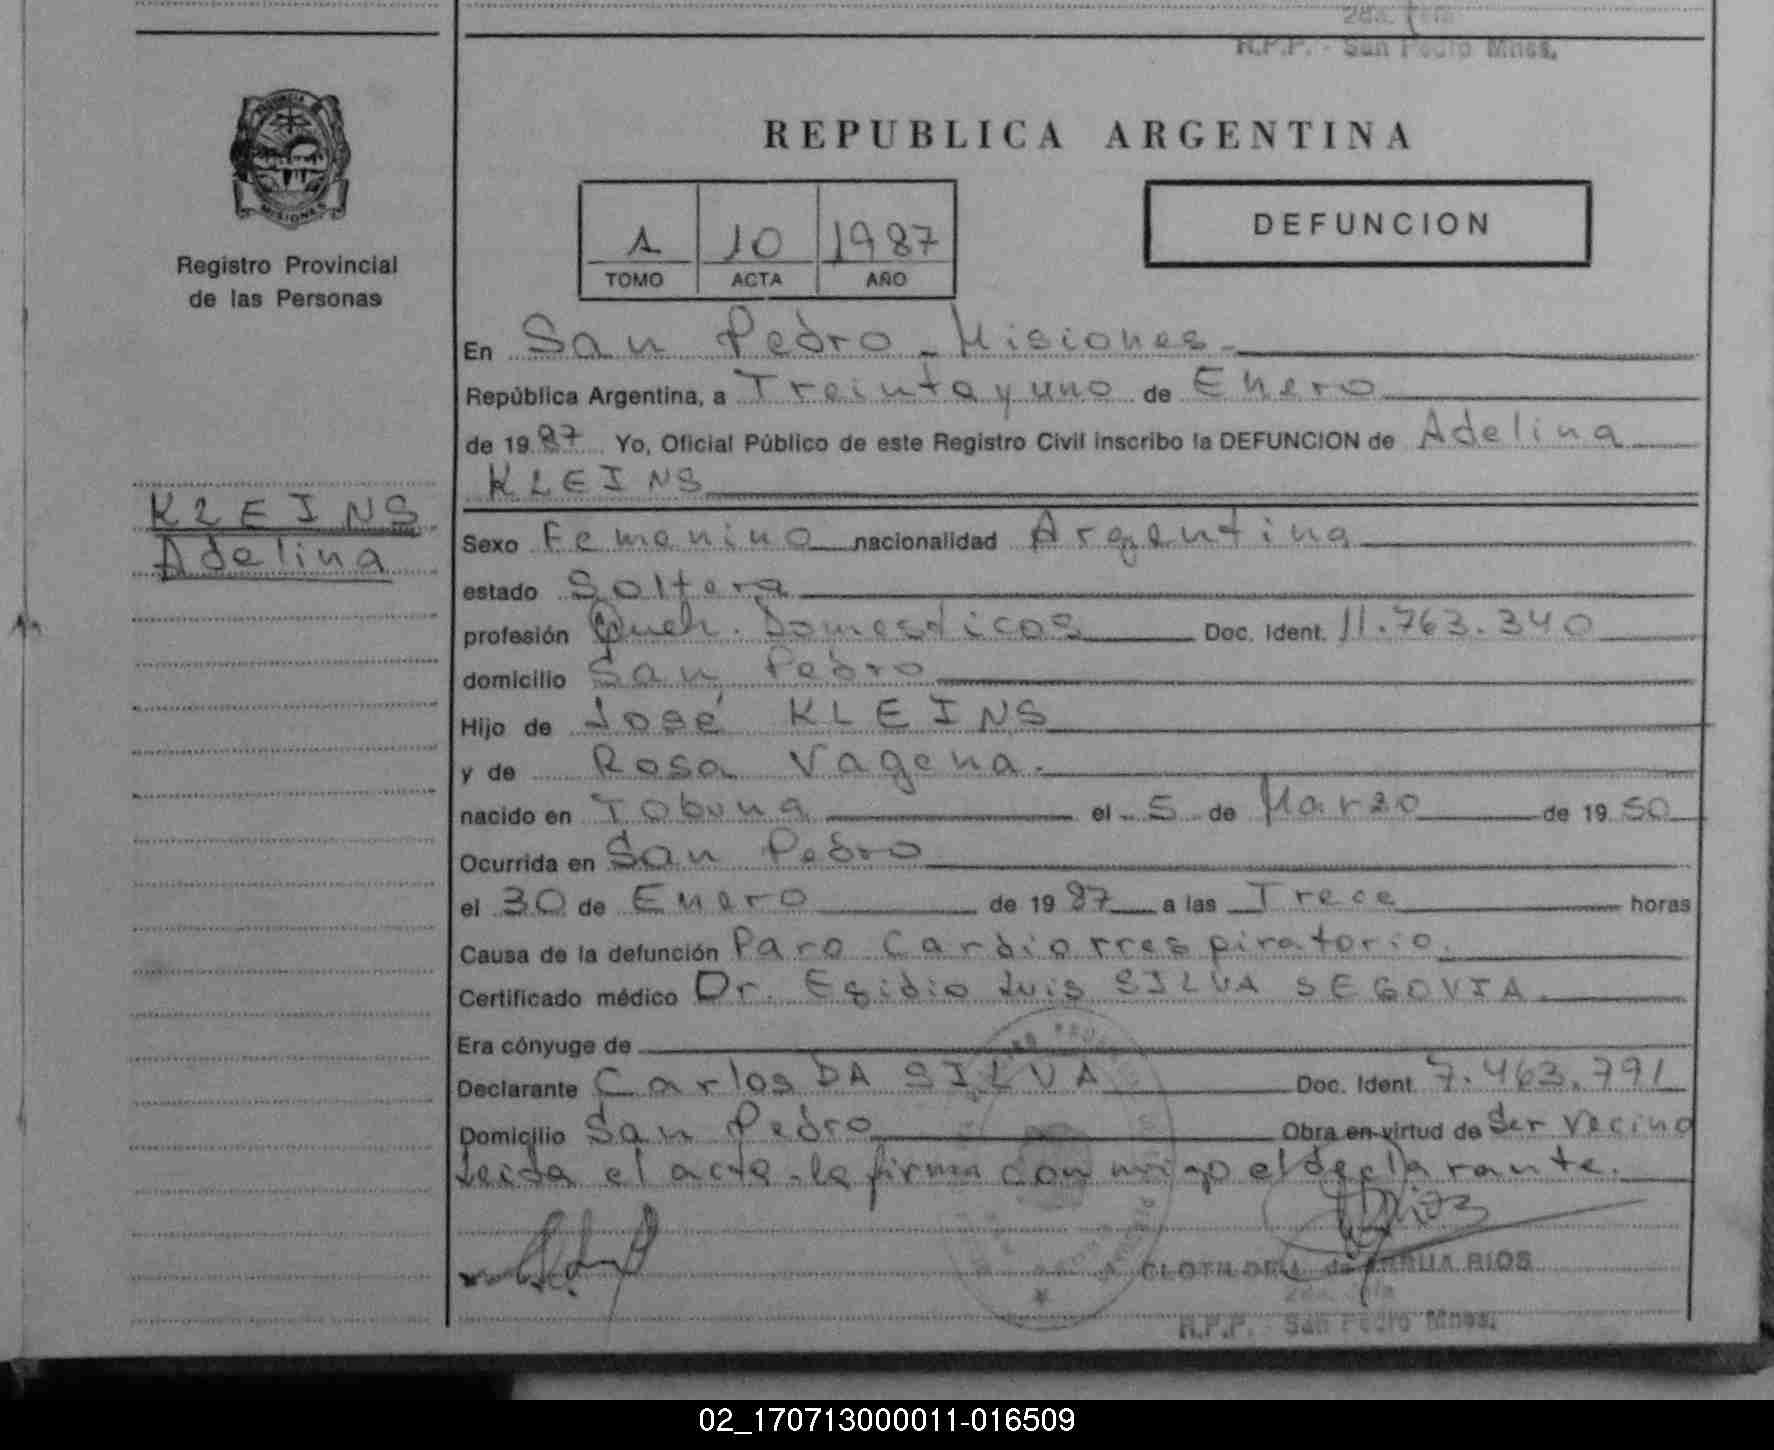 2da. Jefa
R.P.P. - San Pedro Mnes.
PROVINCIA DE
MISIONES
Registro Provincial
de las Personas
REPUBLICA ARGENTINA
1 10 1987
TOMO ACTA AÑO
DEFUNCION
En San Pedro - Misiones -
República Argentina, a Treinta y uno de Enero
de 19 87 Yo, Oficial Público de este Registro Civil inscribo la DEFUNCION de Adelina
KLEINS
KLEINS
Adelina
Sexo Femenino nacionalidad Argentina
estado Soltera
profesión Queh. Domesticos Doc. Ident. 11.763.340
domicilio San Pedro
Hijo de José KLEINS
y de Rosa Vagena.
nacido en Tobuna el 5 de Marzo de 19 50
Ocurrida en San Pedro
el 30 de Enero de 19 87 a las Trece horas
Causa de la defunción Paro Cardiorrespiratorio.
Certificado médico Dr. Egidio Luis SILVA SEGOVIA.
Era cónyuge de
Declarante Carlos DA SILVA Doc. Ident. 7.463.791
Domicilio San Pedro Obra en virtud de Ser vecino
Leida el acta, la firma con migo el declarante.
RIOS
2da. Jefa
R.P.P. - San Pedro Mnes.
02_170713000011-016509